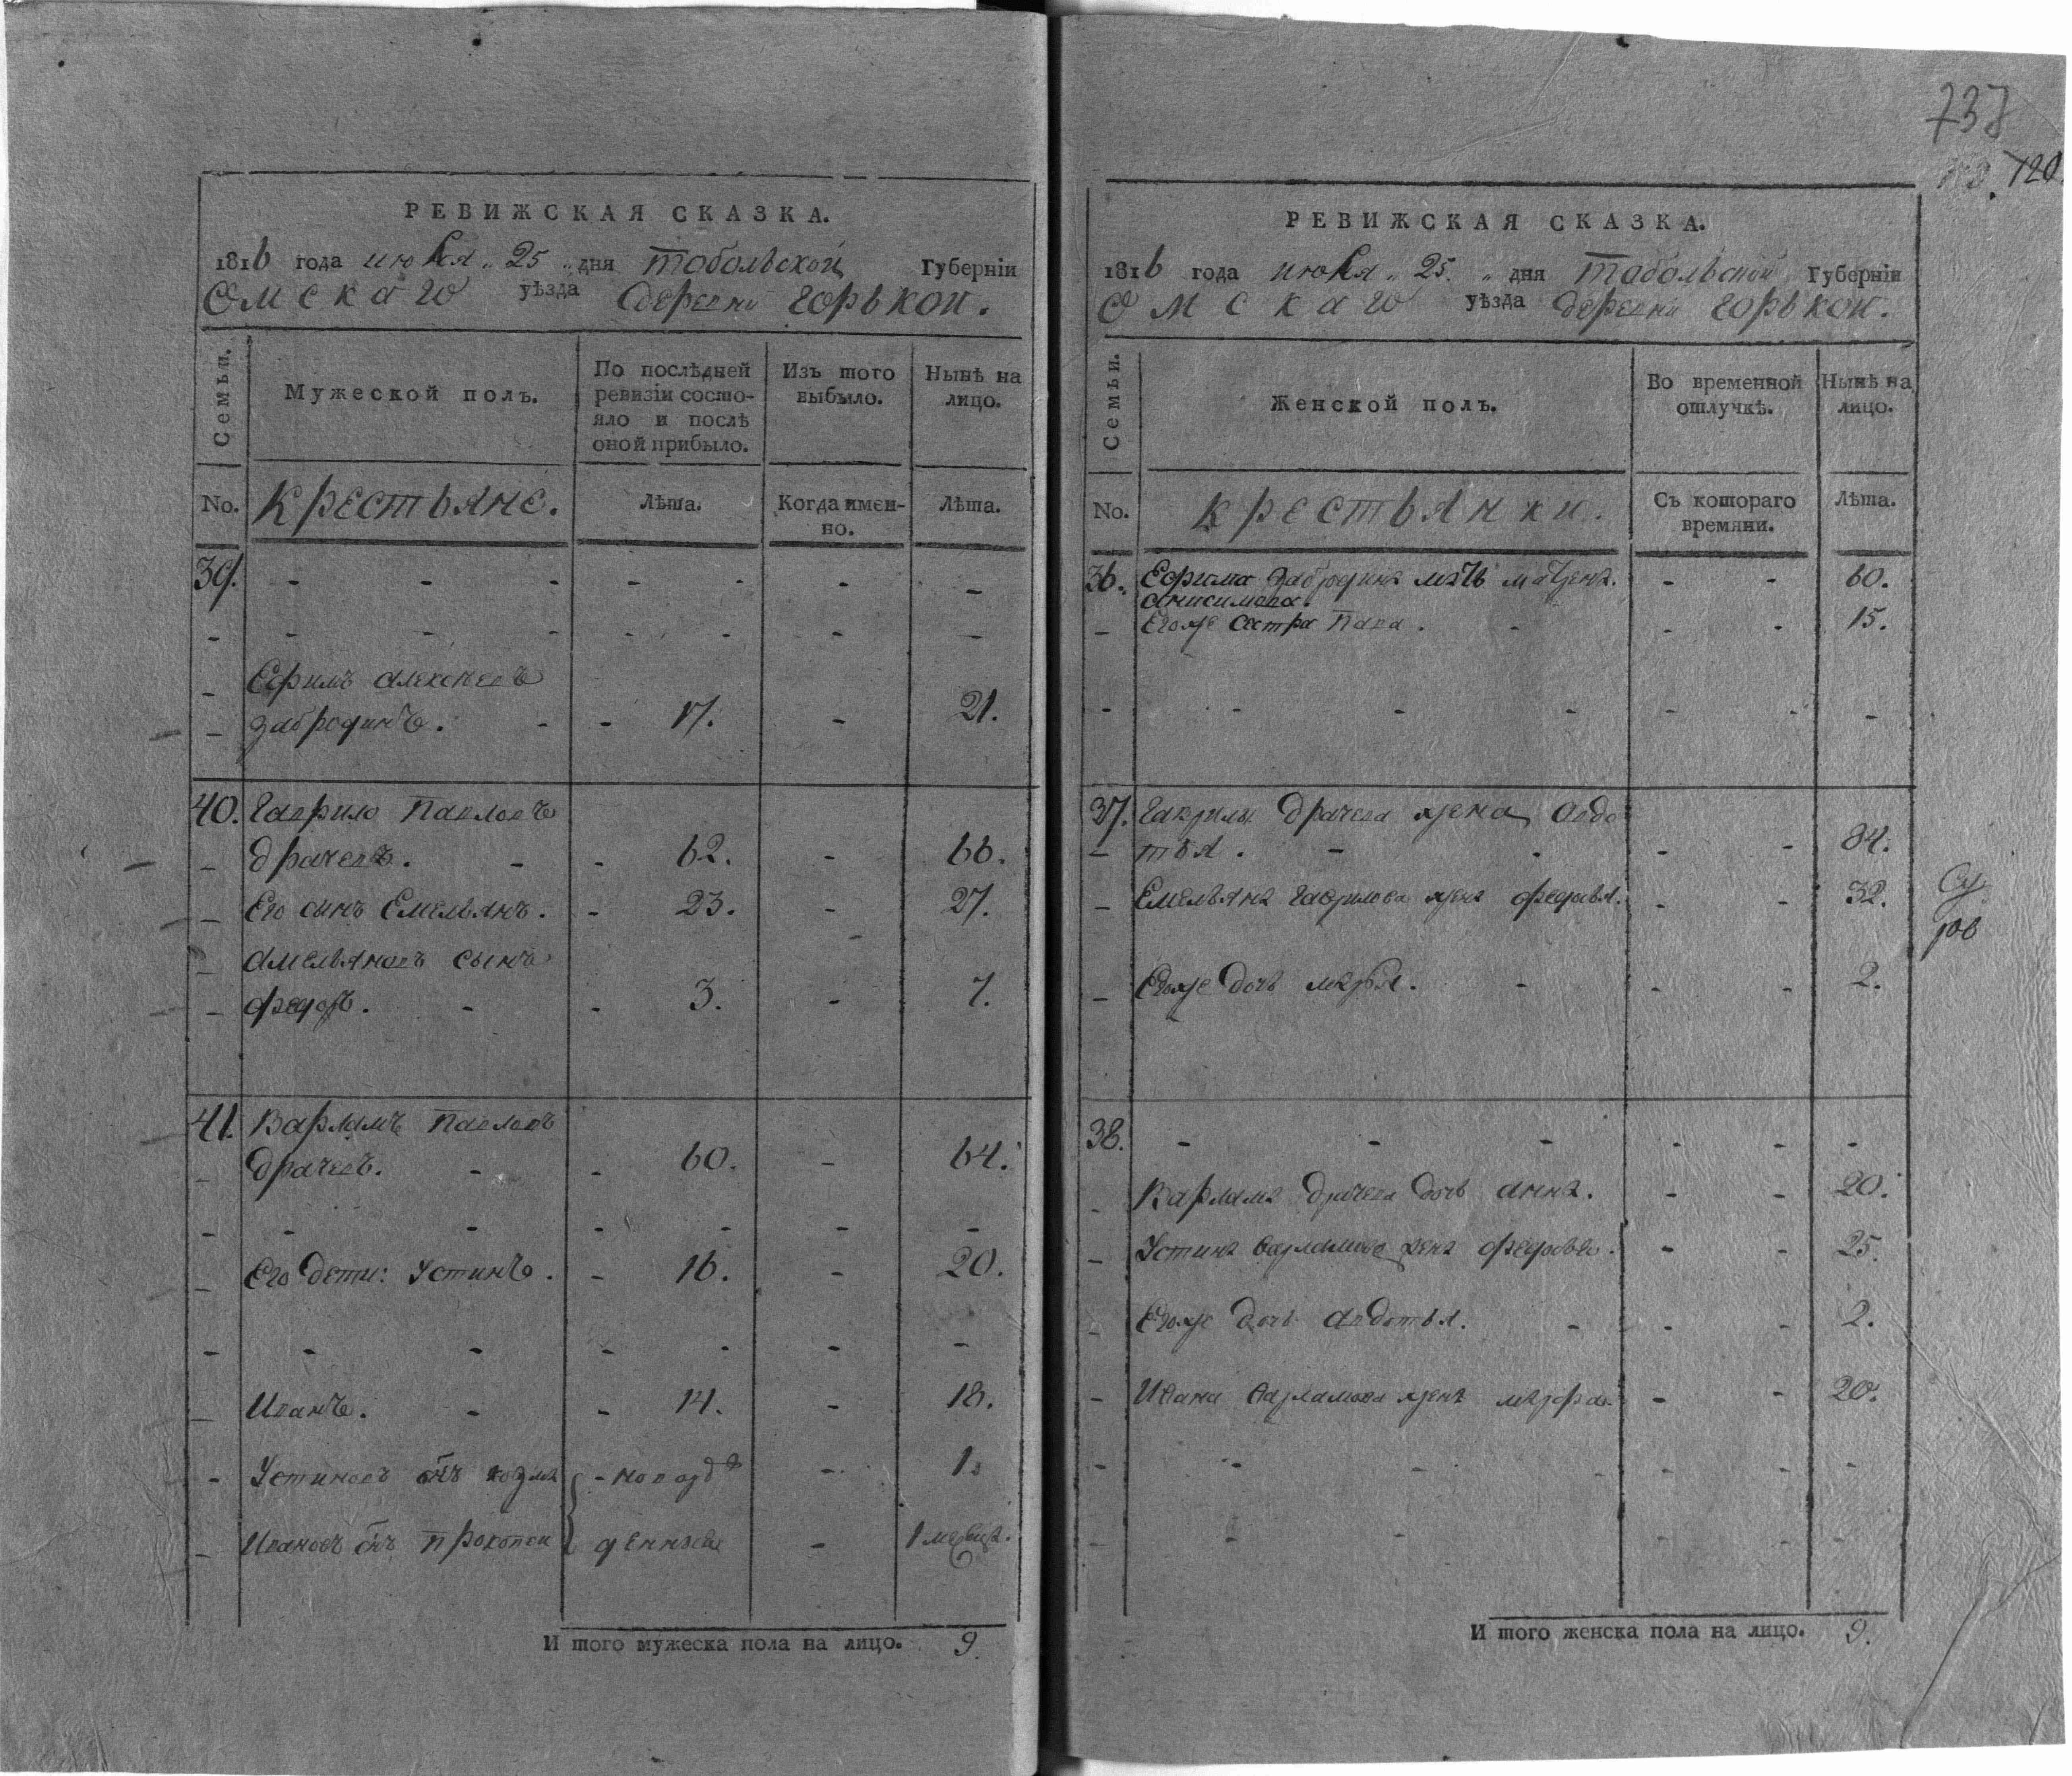 РЕВИЖСКАЯ СКАЗКА.
1816 года июля „ 25 „ дня Тобольской Губернїи
Омскаго уѣзда деревни Горькой.
Семьи.
Мужеской полъ.
По послѣдней ревизїи состо-
яло и послѣ
оной прибыло.
Изъ того выбыло.
Нынѣ на лицо.
No. Крестьяне. Лѣта. Когда имен-
но. Лѣта.
39. - - - - - - -
- - - - - - - -
- Ефимъ Алексѣевъ
- Забродинъ. - - 17. - 21.
40. Гаврило Павловъ
- Драчевъ. - - 62. - 66.
- Его сынъ Емельянъ. - 23. - 27.
- Амельяновъ сынъ
- Федоръ. - - 3. - 7.
41. Варламъ Павловъ
- Драчевъ. - - 60. - 64.
- - - - - - -
- Его дети: Устинъ. - 16. - 20.
- - - - - - -
- Иванъ. - - 14. - 18.
- Устиновъ снъ Козма - новорож - 1.
- Ивановъ снъ Прокопей денные - 1 месяца.
И того мужеска пола на лицо. 9.
737
120.
РЕВИЖСКАЯ СКАЗКА.
1816 года июля „ 25. „ дня Тобольской Губернїи
Омскаго уѣзда деревни Горькой.
Семьи.
Женской полъ.
Во временной
отлучкѣ.
Нынѣ на
лицо.
No. Крестьянки. Съ котораго
времяни. Лѣта.
36. Ефима Забродина мать
Анисимова. - - 60.
- Егоже сестра - - - 15.
- - - - - - -
37. Гаврилы Драчева жена Авдо
- тья. - - - - 84.
- Емельяна Гаврилова жена Федосья. - - 32.
- Егоже дочь Марья. - - - 2.
38. - - - - - -
- Варлама Драчева дочь Анна. - - 20.
- Устина Варламова жена - - 25.
- Егоже дочь Авдотья. - - - 2.
- Ивана Варламова жена Марфа. - - 20.
- - - - - - -
- - - - -
И того женска пола на лицо. 9.